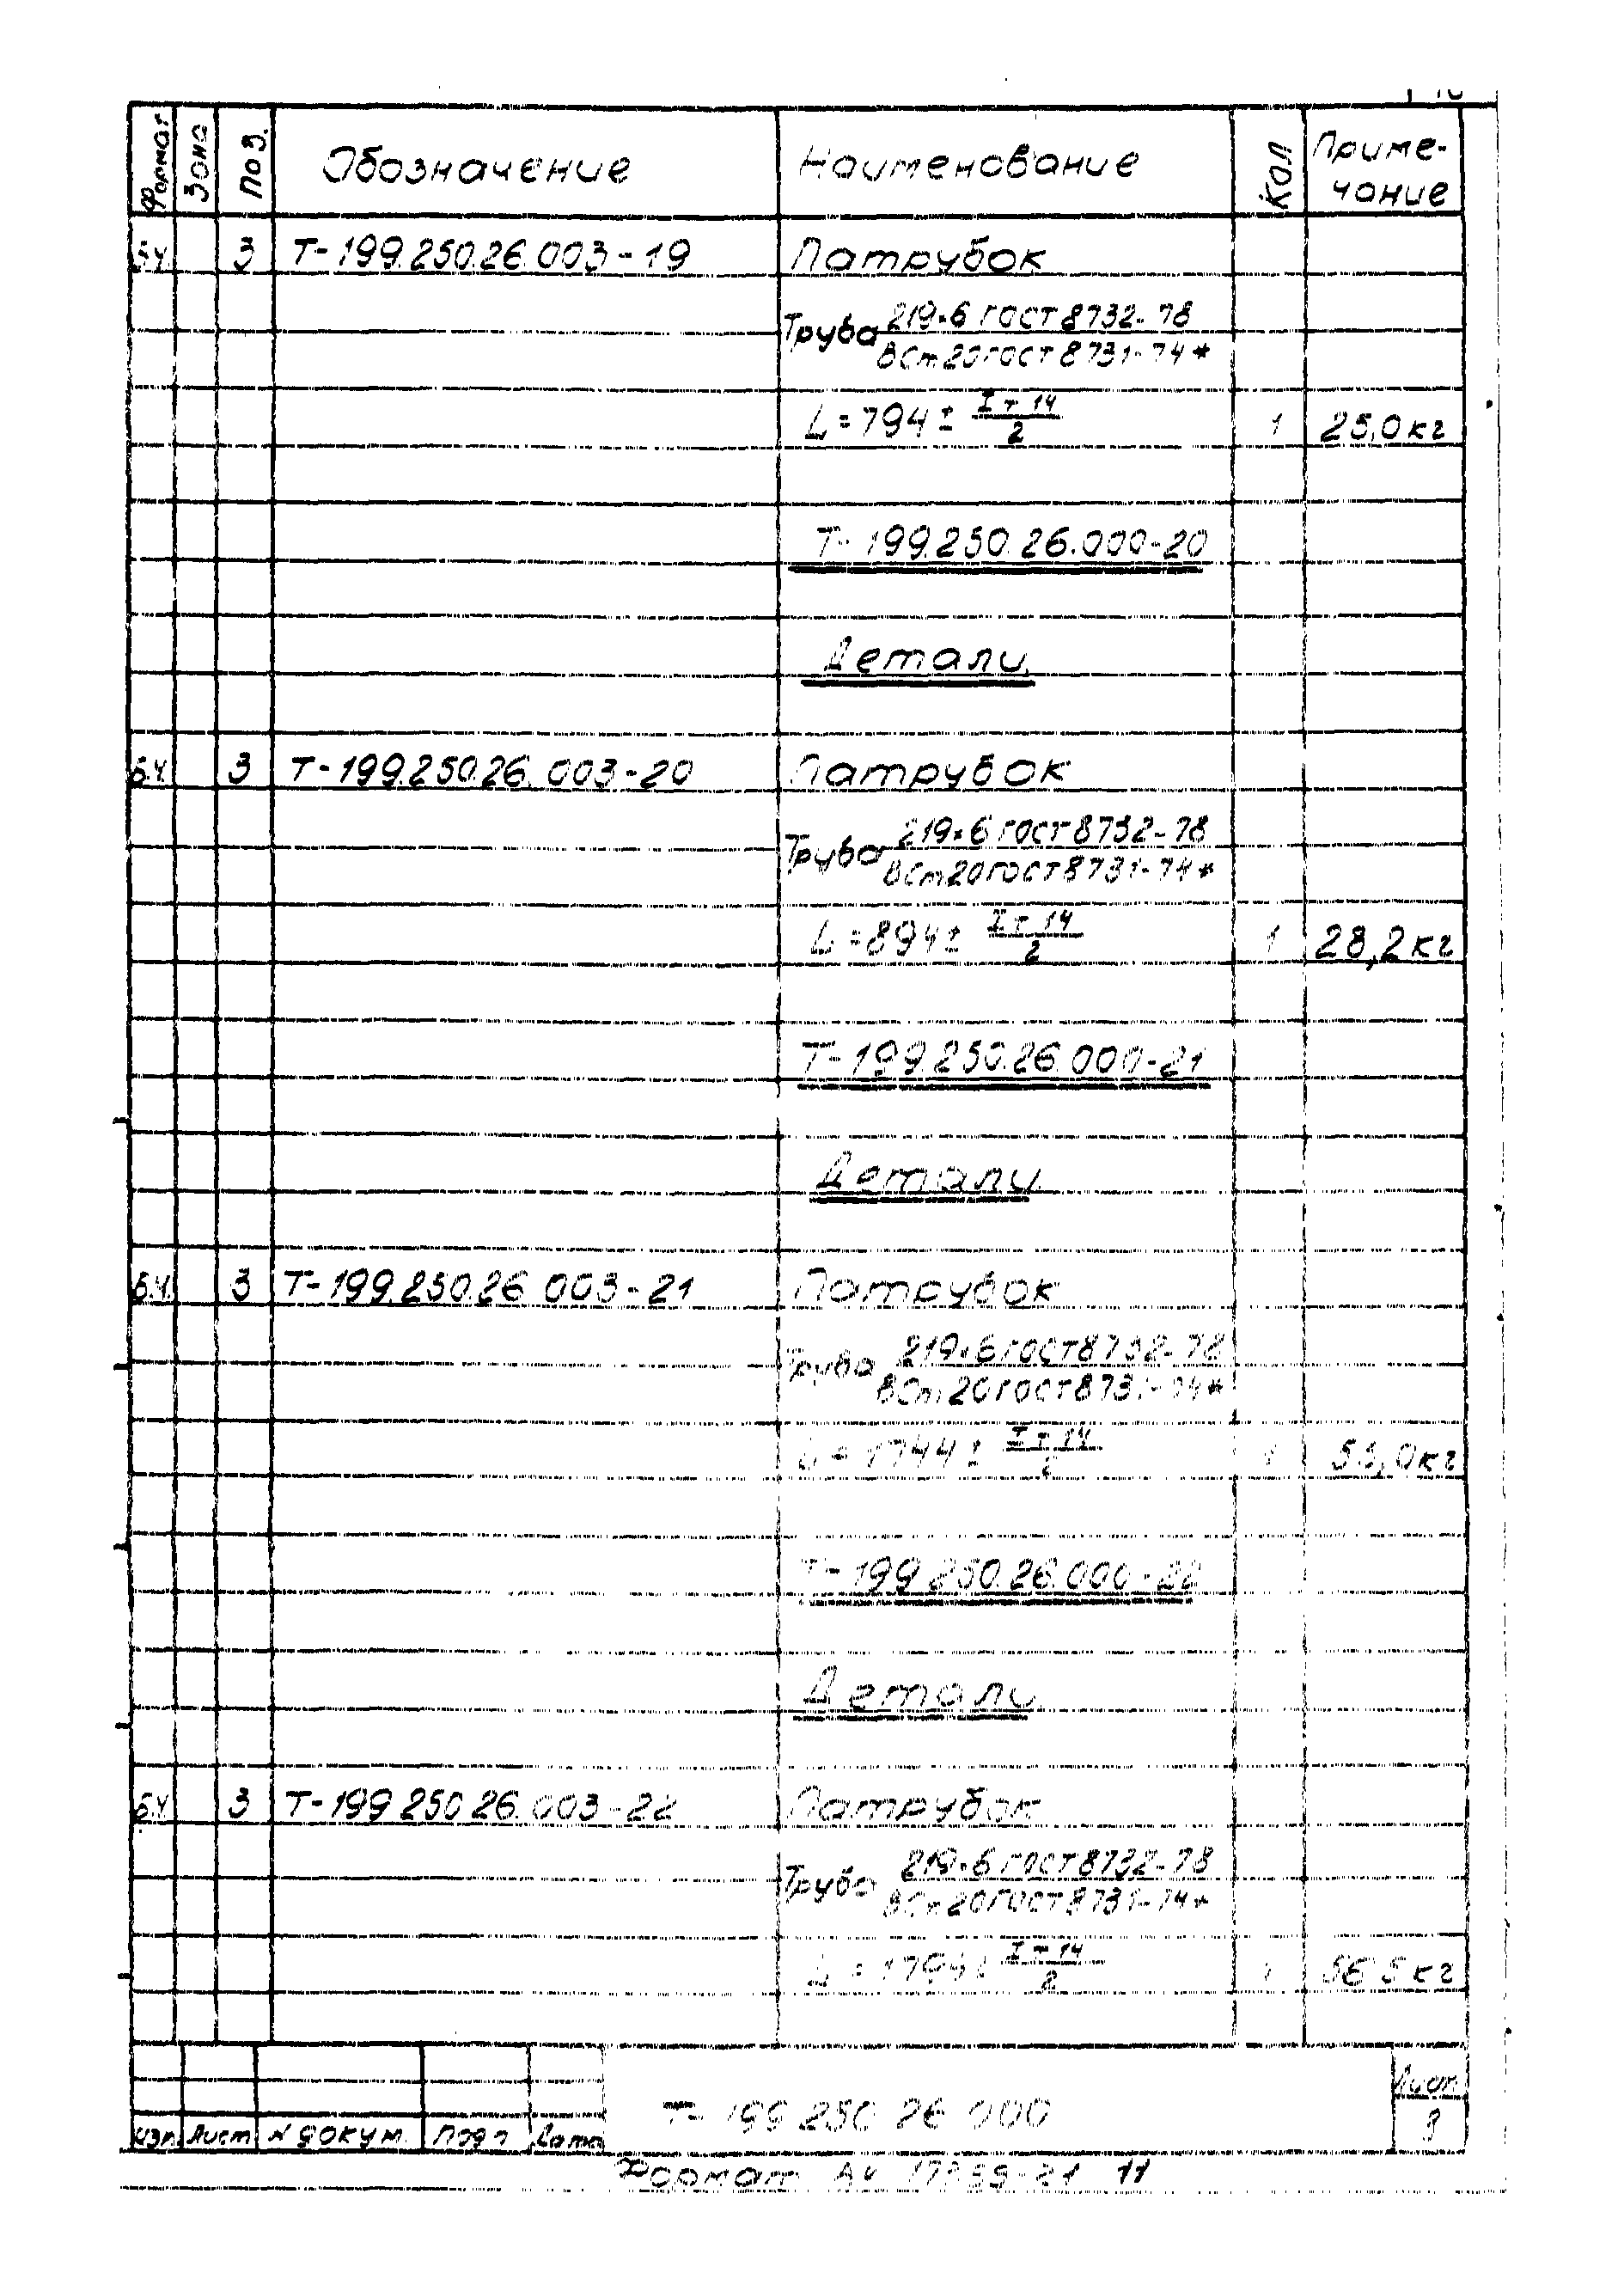 Формат Зона Поз. Обозначение Наименование Кол Приме-
чание
Б.Ч. 3 Т-199.250.26.003-19 Патрубок
Труба 219×6 ГОСТ 8732-78
ВСт20 ГОСТ 8731-74*
L=794± IT14/2 1 25,0кг
Т-199.250.26.000-20
Детали
Б.Ч. 3 Т-199.250.26.003-20 Патрубок
Труба 219×6 ГОСТ 8732-78
ВСт20 ГОСТ 8731-74*
L=894± IT14/2 1 28,2кг
Т-199.250.26.000-21
Детали
Б.Ч. 3 Т-199.250.26.003-21 Патрубок
Труба 219×6 ГОСТ 8732-78
ВСт20 ГОСТ 8731-74*
L=1744± IT14/2 1 кг
Т-199.250.26.000-22
Детали
Б.Ч. 3 Т-199.250.26.003-22 Патрубок
Труба 219×6 ГОСТ 8732-78
ВСт20 ГОСТ 8731-74*
L=1794± IT14/2 1 56,5кг
Т-199.250.26.000 Лист
Изм. Лист № докум. Подп. Дата
Формат А4 11